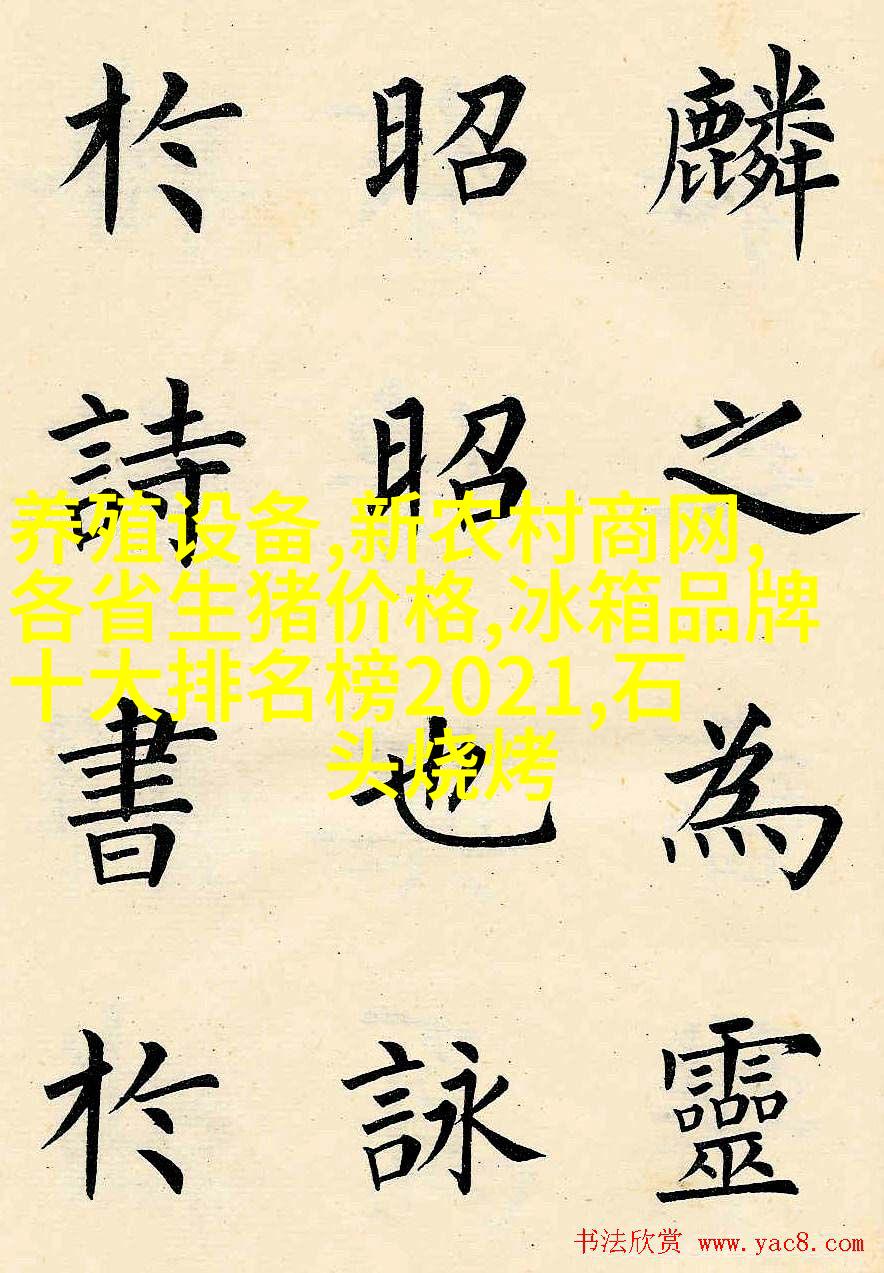 麟之為靈
昭昭也詠
於詩書於
养殖设备,新农村商网,
各省生猪价格,冰箱品牌
十大排名榜2021,石
头烧烤
书法欣赏 www.yac8.com